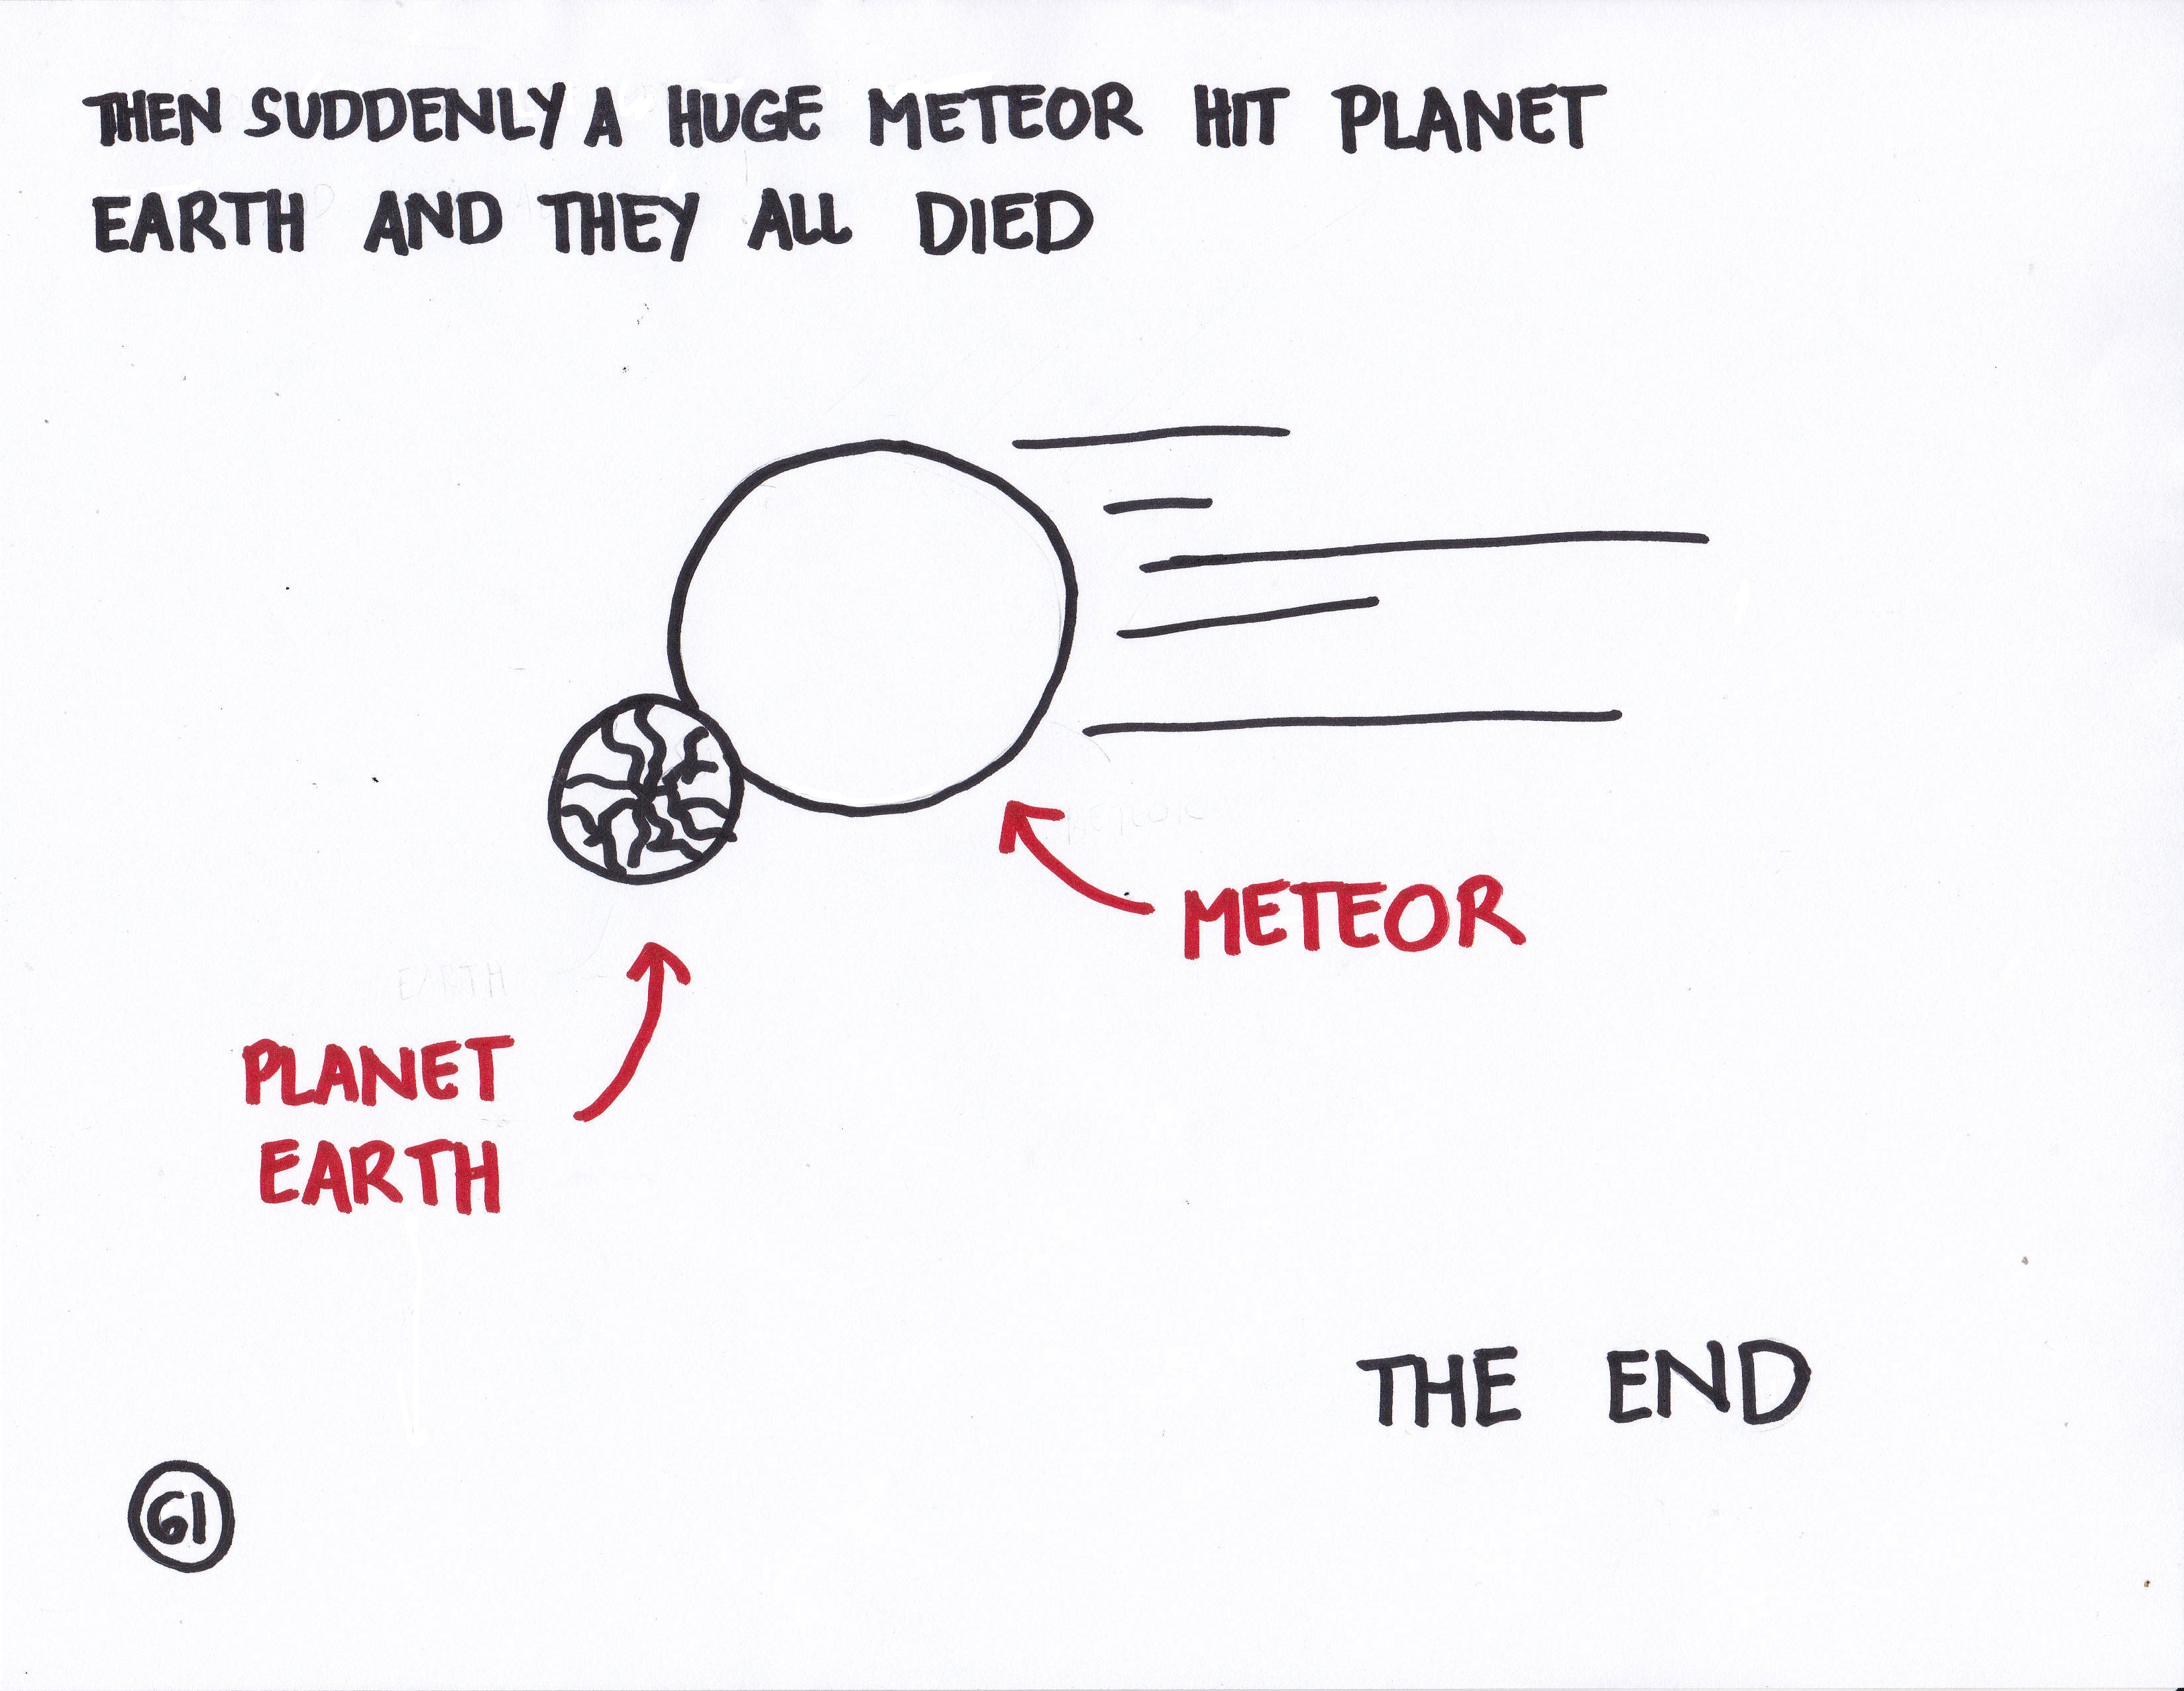 THEN SUDDENLY A HUGE METEOR HIT PLANET
EARTH AND THEY ALL DIED
METEOR
EARTH
METEOR
PLANET
EARTH
THE END
61